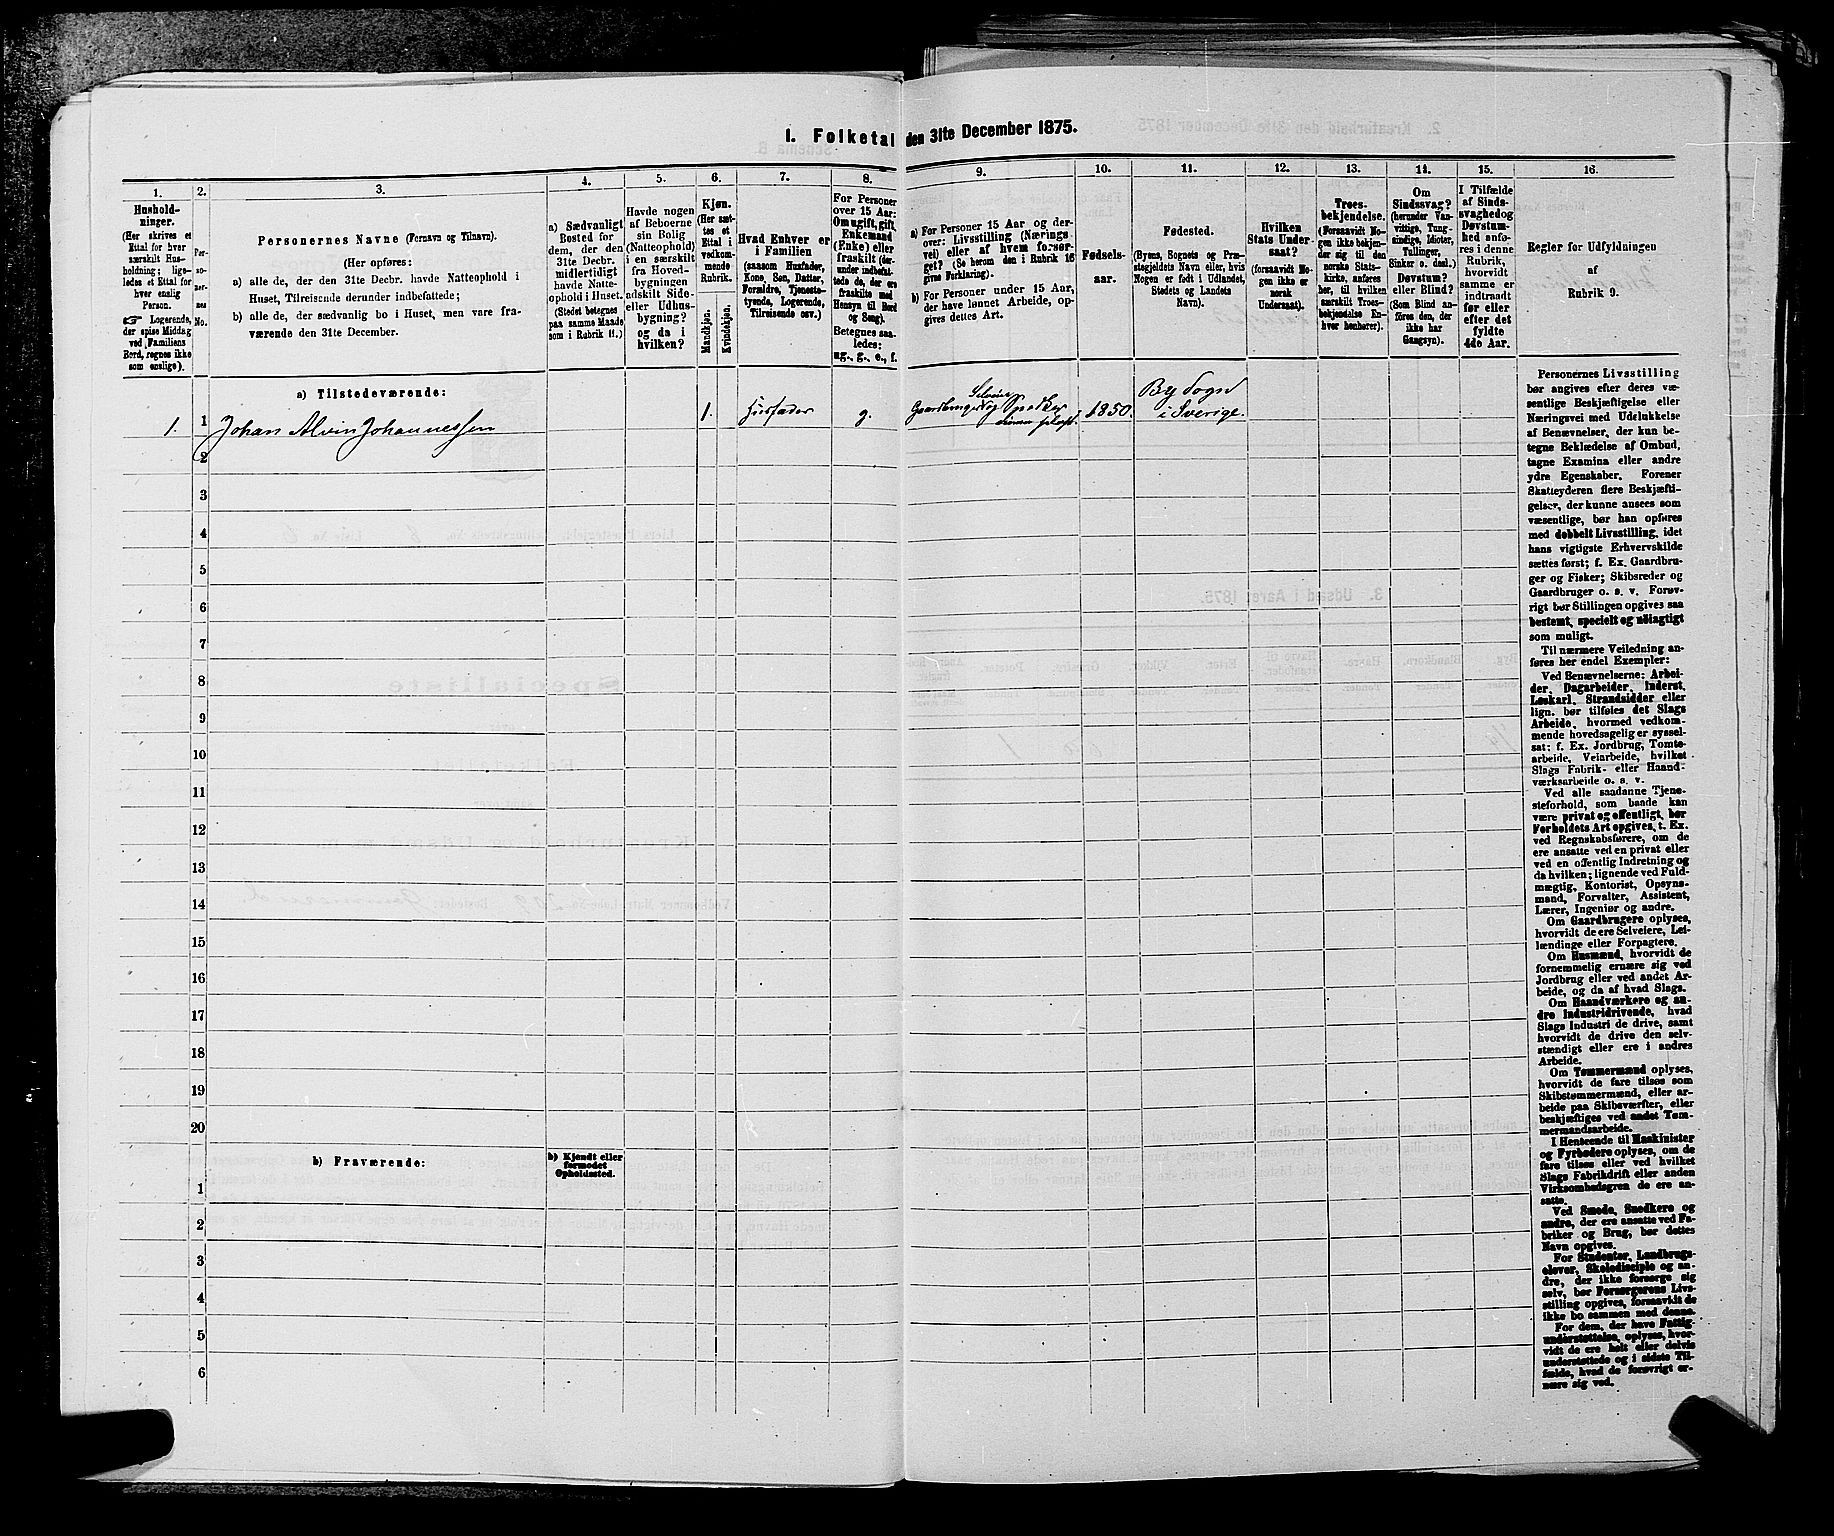 1. Folketal den 31te December 1875.
1.
Hushold-
ninger.
(Her skrives et
Ettal for hver
særskilt Hus-
holdning; lige-
ledes et Ettal for
hver enslig
Person.
Logerende,
der spise Middag
ved Familiens
Bord, regnes ikke
som enslige).
2.
Per-
so-
ner-
nes
No.
3.
Personernes Navne (Fornavn og Tilnavn).
(Her opføres:
a) alle de, der den 31te Decbr. havde Natteophold i
Huset, Tilreisende derunder indbefattede;
b) alle de, der sædvanlig bo i Huset, men vare fra-
værende den 31te December.
4.
a) Sædvanligt
Bosted for
dem, der den
31te Decbr.
midlertidigt
havde Natte-
ophold i Huset.
(Stedet betegnes
paa samme Maade
som i Rubrik 11.)
5.
Havde nogen
af Beboerne
sin Bolig
(Natteophold)
i en særskilt
fra Hoved-
bygningen
adskilt Side-
eller Udhus-
bygning?
og da i
hvilken?
6.
Kjøn.
(Her sæt-
tes et
Ettal i
vedkom-
mende
Rubrik.
Mandkjøn.
Kvindekjøn.
7.
Hvad Enhver er
i Familien
(saasom Husfader,
Kone, Søn, Datter,
Forældre, Tjeneste-
tyende, Logerende,
Tilreisende osv.)
8.
For Personer
over 15 Aar:
Om ugift, gift,
Enkemand
(Enke) eller
fraskilt (der-
under indbefat-
tede de, der ere
fraskilte med
Hensyn til Bord
og Seng).
Betegnes saa-
ledes:
ug., g., e., f.
9.
a) For Personer 15 Aar og der-
over: Livsstilling (Nærings-
vei) eller af hvem forsør-
get? (Se herom den i Rubrik 16
givne Forklaring).
b) For Personer under 15 Aar,
der have lønnet Arbeide, op-
gives dettes Art.
10.
Fødsels-
aar.
11.
Fødested.
(Byens, Sognets og Præ-
stegjeldets Navn eller, hvis
Nogen er født i Udlandet,
Stedets og Landets
Navn).
12.
Hvilken
Stats Under-
saat?
(forsaavidt No-
gen ikke er
norsk
Undersaat).
13.
Troes-
bekjendelse.
(Forsaavidt No-
gen ikke bekjen-
der sig til den
norske Stats-
kirke, anføres
her, til hvilken
særskilt Troes-
bekjendelse En-
hver henhører).
14.
Om
Sindssvag?
(herunder Van-
vittige, Tung-
sindige, Idioter,
Tullinger,
Sinker o. desl.).
Døvstum?
eller Blind?
(Som Blind an-
føres den, der
ikke har
Gangsyn).
15.
I Tilfælde
af Sinds-
svaghed og
Døvstum-
hed anfø-
res i denne
Rubrik,
hvorvidt
samme er
indtraadt
før eller
efter det
fyldte
4de Aar.
16.
Regler for Udfyldningen
af
Rubrik 9.
a) Tilstedeværende:
1. 1 Johan Alvin Johannessen 1. Husfader g. Gaardbruger Selveier og Snedker 1850. By Sogn
i Sverige.
2
3
4
5
6
7
8
9
10
11
12
13
14
15
16
17
18
19
20
b) Fraværende:
b) Kjendt eller
formodet
Opholdssted.
1
2
3
4
5
6
Personernes Livsstilling
bør angives efter deres væ-
sentlige Beskjæftigelse eller
Næringsvei med Udelukkelse
af Benævnelser, der kun be-
tegne Beklædelse af Ombud,
tagne Examina eller andre
ydre Egenskaber. Forener
Skatteyderen flere Beskjæfti-
gelser, der kunne ansees som
væsentlige, bør han opføres
med dobbelt Livsstilling, idet
hans vigtigste Erhvervskilde
sættes først; f. Ex. Gaardbru-
ger og Fisker; Skibsreder og
Gaardbruger o. s. v. Forøv-
rigt bør Stillingen opgives saa
bestemt, specielt og nøiagtigt
som muligt.
Til nærmere Veiledning an-
føres her endel Exempler:
Ved Benævnelserne: Arbei-
der, Dagarbeider, Inderst,
Løskarl, Strandsidder eller
lign. bør tilføies det Slags
Arbeide, hvormed vedkom-
mende hovedsagelig er syssel-
sat; f. Ex. Jordbrug, Tomte-
arbeide, Veiarbeide, hvilket
Slags Fabrik- eller Haand-
værksarbeide o. s. v.
Ved alle saadanne Tjene-
steforhold, som baade kan
være privat og offentligt, bør
Forholdets Art opgives, t. Ex.
ved Regnskabsførere, om de
ere ansatte ved en privat eller
ved en offentlig Indretning og
da hvilken; lignende ved Fuld-
mægtig, Kontorist, Opsyns-
mand, Forvalter, Assistent,
Lærer, Ingeniør og andre.
Om Gaardbrugere oplyses,
hvorvidt de ere Selveiere, Lei-
lændinge eller Forpagtere.
Om Husmænd, hvorvidt de
fornemmelig ernære sig ved
Jordbrug eller ved andet Ar-
beide, og da af hvad Slags.
Om Haandværkere og an-
dre Industridrivende, hvad
Slags Industri de drive, samt
hvorvidt de drive den selv-
stændigt eller ere i andres
Arbeide.
Om Tømmermænd oplyses,
hvorvidt de fare tilsøs som
Skibstømmermænd, eller ar-
beide paa Skibsværfter, eller
beskjæftiges ved andet Tøm-
mermandsarbeide.
I Henseende til Maskinister
og Fyrbødere oplyses, om de
fare tilsøs eller ved hvilket
Slags Fabrikdrift eller anden
Virksomhedsgren de ere an-
satte.
Ved Smede, Snedkere og
andre, der ere ansatte ved Fa-
briker og Brug, bør dettes
Navn opgives.
For Studenter, Landbrugs-
elever, Skoledisciple og an-
dre, der ikke forsørge sig
selv, bør Forsørgerens Livs-
stilling opgives, forsaavidt de
ikke bo sammen med denne.
For dem, der have Fattig-
understøttelse, oplyses, hvor-
vidt de ere helt eller delvis
understøttede og i sidste Til-
fælde, hvad de forøvrigt er-
nære sig ved.